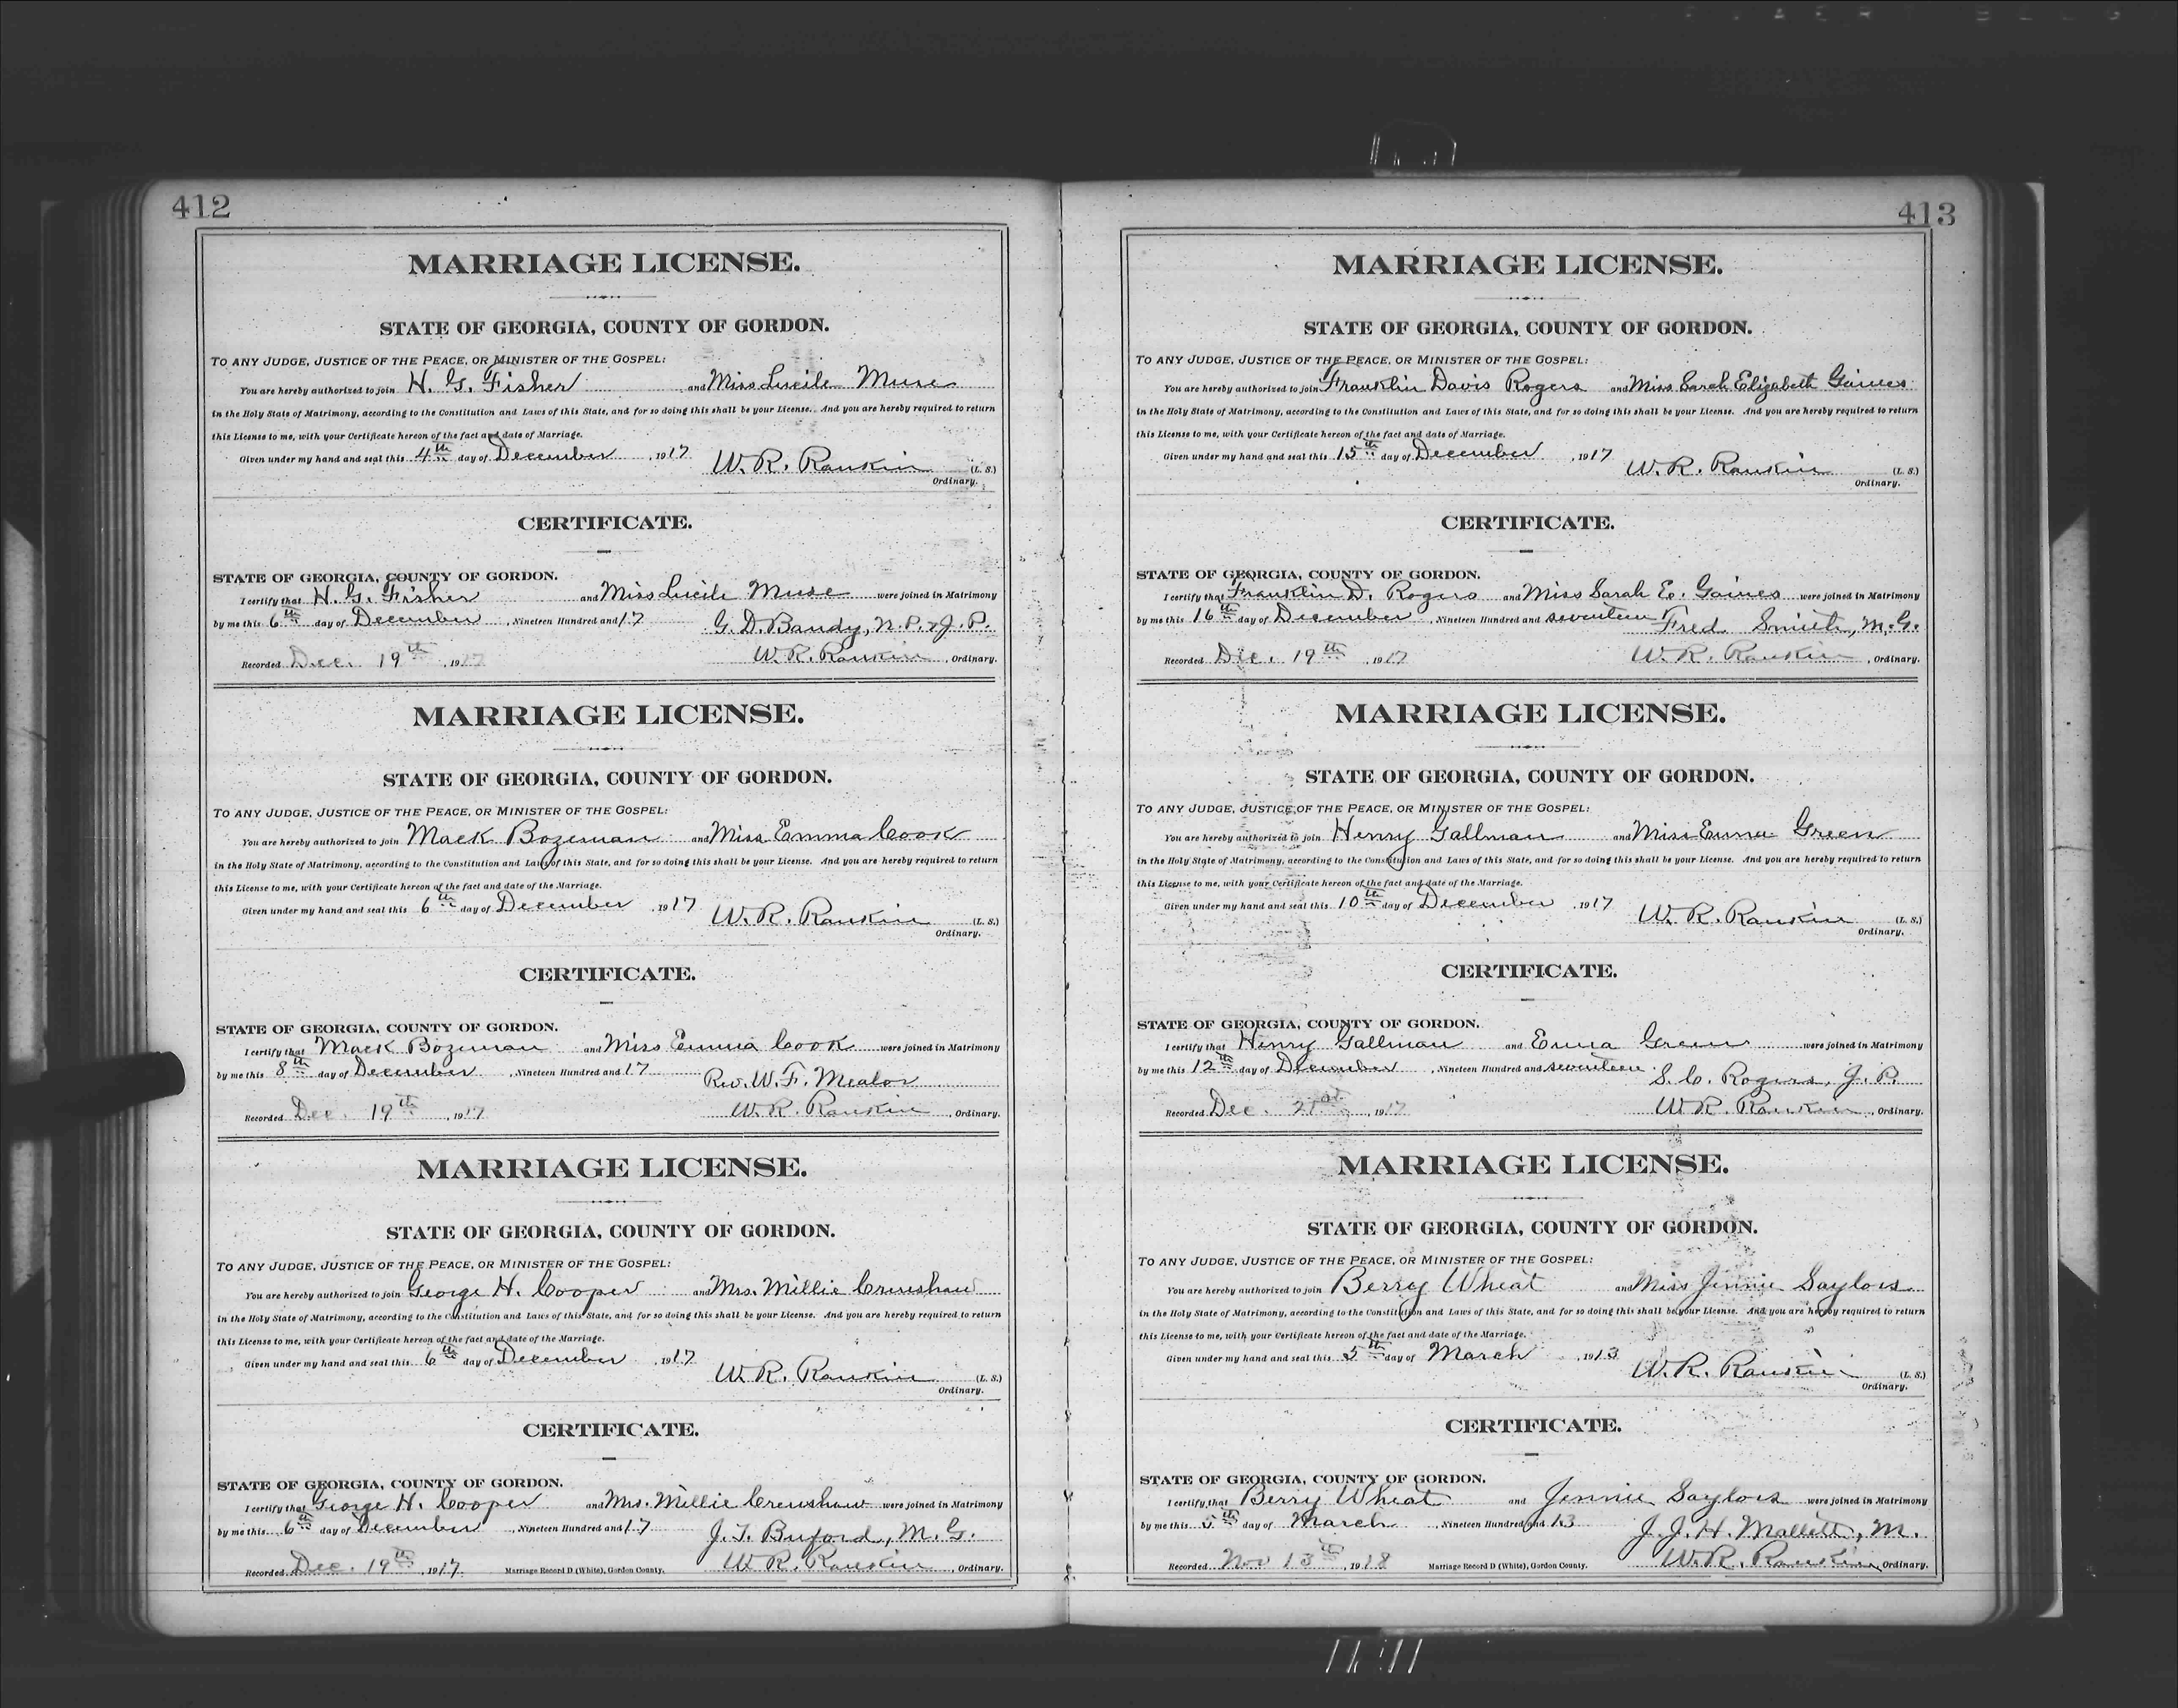 412
MARRIAGE LICENSE.
STATE OF GEORGIA, COUNTY OF GORDON.
TO ANY JUDGE, JUSTICE OF THE PEACE, OR MINISTER OF THE GOSPEL:
You are hereby authorized to join H. G. Fisher and Miss Lucile Muse
in the Holy State of Matrimony, according to the Constitution and Laws of this State, and for so doing this shall be your License. And you are hereby required to return
this License to me, with your Certificate hereon of the fact and date of Marriage.
Given under my hand and seal this 4th day of December, 1917 W. R. Rankin (L. S.)
Ordinary.
CERTIFICATE.
STATE OF GEORGIA, COUNTY OF GORDON.
I certify that H. G. Fisher and Miss Lucile Muse were joined in Matrimony
by me this 6th day of December, Nineteen Hundred and 17 G. D. Bandy, N. P. & J. P.
Recorded Dec. 19th, 1917 W. R. Rankin, Ordinary.
MARRIAGE LICENSE.
STATE OF GEORGIA, COUNTY OF GORDON.
TO ANY JUDGE, JUSTICE OF THE PEACE, OR MINISTER OF THE GOSPEL:
You are hereby authorized to join Mack Bozeman and Miss Emma Cook
in the Holy State of Matrimony, according to the Constitution and Laws of this State, and for so doing this shall be your License. And you are hereby required to return
this License to me, with your Certificate hereon of the fact and date of the Marriage.
Given under my hand and seal this 6th day of December, 1917 W. R. Rankin (L. S.)
Ordinary.
CERTIFICATE.
STATE OF GEORGIA, COUNTY OF GORDON.
I certify that Mack Bozeman and Miss Emma Cook were joined in Matrimony
by me this 8th day of December, Nineteen Hundred and 17 Rev. W. F. Mealor
Recorded Dec. 19th, 1917 W. R. Rankin, Ordinary.
MARRIAGE LICENSE.
STATE OF GEORGIA, COUNTY OF GORDON.
TO ANY JUDGE, JUSTICE OF THE PEACE, OR MINISTER OF THE GOSPEL:
You are hereby authorized to join George H. Cooper and Mrs. Millie Crenshaw
in the Holy State of Matrimony, according to the Constitution and Laws of this State, and for so doing this shall be your License. And you are hereby required to return
this License to me, with your Certificate hereon of the fact and date of the Marriage.
Given under my hand and seal this 6th day of December, 1917 W. R. Rankin (L. S.)
Ordinary.
CERTIFICATE.
STATE OF GEORGIA, COUNTY OF GORDON.
I certify that George H. Cooper and Mrs. Millie Crenshaw were joined in Matrimony
by me this 6th day of December, Nineteen Hundred and 17 J. T. Buford, M. G.
Recorded Dec. 19th, 1917. Marriage Record D (White), Gordon County. W. R. Rankin, Ordinary.
413
MARRIAGE LICENSE.
STATE OF GEORGIA, COUNTY OF GORDON.
TO ANY JUDGE, JUSTICE OF THE PEACE, OR MINISTER OF THE GOSPEL:
You are hereby authorized to join Franklin Davis Rogers and Miss Sarah Elizabeth Gaines
in the Holy State of Matrimony, according to the Constitution and Laws of this State, and for so doing this shall be your License. And you are hereby required to return
this License to me, with your Certificate hereon of the fact and date of Marriage.
Given under my hand and seal this 15th day of December, 1917 W. R. Rankin (L. S.)
Ordinary.
CERTIFICATE.
STATE OF GEORGIA, COUNTY OF GORDON.
I certify that Franklin D. Rogers and Miss Sarah E. Gaines were joined in Matrimony
by me this 16th day of December, Nineteen Hundred and seventeen Fred Smith, M. G.
Recorded Dec. 19th, 1917 W. R. Rankin, Ordinary.
MARRIAGE LICENSE.
STATE OF GEORGIA, COUNTY OF GORDON.
TO ANY JUDGE, JUSTICE OF THE PEACE, OR MINISTER OF THE GOSPEL:
You are hereby authorized to join Henry Gallman and Miss Emma Green
in the Holy State of Matrimony, according to the Constitution and Laws of this State, and for so doing this shall be your License. And you are hereby required to return
this License to me, with your Certificate hereon of the fact and date of the Marriage.
Given under my hand and seal this 10th day of December, 1917 W. R. Rankin (L. S.)
Ordinary.
CERTIFICATE.
STATE OF GEORGIA, COUNTY OF GORDON.
I certify that Henry Gallman and Emma Green were joined in Matrimony
by me this 12th day of December, Nineteen Hundred and seventeen S. C. Rogers, J. P.
Recorded Dec. 21st, 1917 W. R. Rankin, Ordinary.
MARRIAGE LICENSE.
STATE OF GEORGIA, COUNTY OF GORDON.
TO ANY JUDGE, JUSTICE OF THE PEACE, OR MINISTER OF THE GOSPEL:
You are hereby authorized to join Berry Wheat and Miss Jennie Saylors
in the Holy State of Matrimony, according to the Constitution and Laws of this State, and for so doing this shall be your License. And you are hereby required to return
this License to me, with your Certificate hereon of the fact and date of the Marriage.
Given under my hand and seal this 5th day of March, 1913 W. R. Rankin (L. S.)
Ordinary.
CERTIFICATE.
STATE OF GEORGIA, COUNTY OF GORDON.
I certify that Berry Wheat and Jennie Saylors were joined in Matrimony
by me this 5th day of March, Nineteen Hundred and 13 J. J. H. Mallett, M.
Recorded Nov 13th, 1918 Marriage Record D (White), Gordon County. W. R. Rankin, Ordinary.